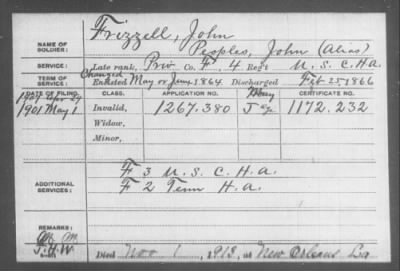 Frizzell, John
NAME OF SOLDIER: Peoples, John (Alias)
SERVICE: Late rank, Priv Co. F, 4 Reg't U. S. C. H. A.
TERM OF SERVICE: Changed Enlisted May or June 1864 Discharged Feb 25 1866
DATE OF FILING. CLASS. APPLICATION NO. CERTIFICATE NO.
1901 May 1 Invalid, 1267.380 1172.232
Widow,
Minor,
ADDITIONAL SERVICES: F 3 U. S. C. H. A.
F 2 Tenn H. A.
REMARKS:
J. H. W.
Died Nov 1, 1913, at New Orleans La